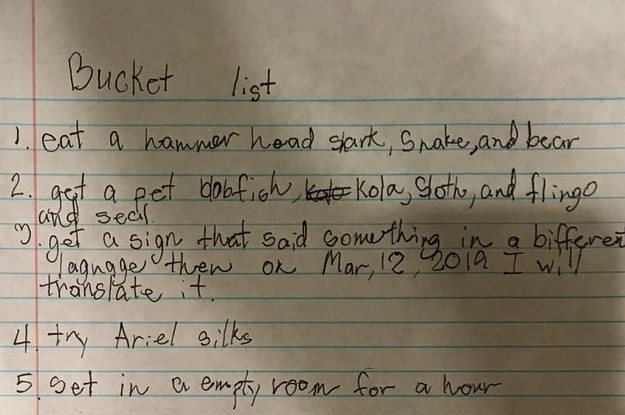 Bucket list
1. eat a hammer head skark, Snake, and bear
2. get a pet blobfich, Kola, Sloth, and flingo
and seal
3. get a sign that said something in a bifferen
lagngge then on Mar, 12, 2019 I will
translate it.
4. try Ariel silks
5. set in a empty room for a hour